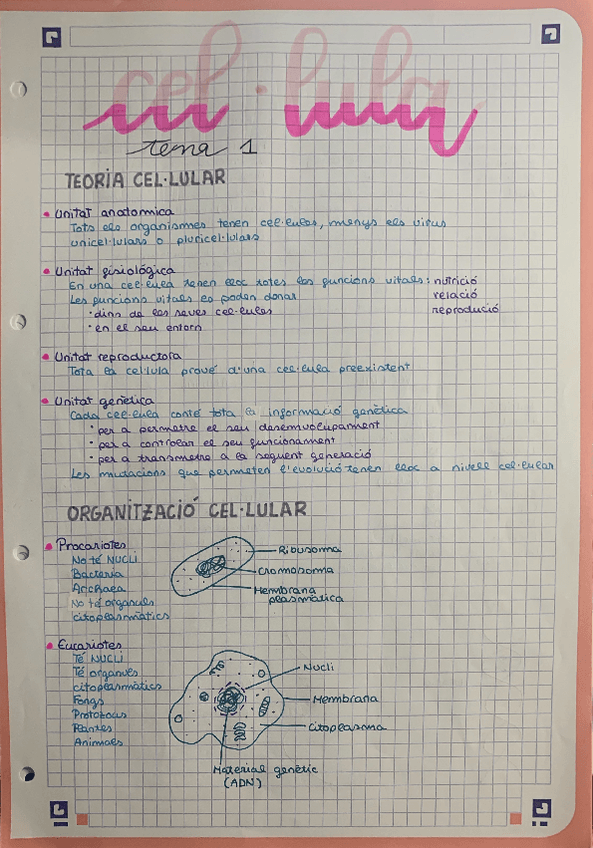 cel·lula
tema 1
TEORIA CEL·LULAR
Unitat anatomica
Tots els organismes tenen cel·lules, menys els virus
unicel·lulars o pluricel·lulars
Unitat fisiológica
En una cel·lula tenen lloc totes les funcions vitals: nutrició
Les funcions vitals es poden donar relació
· dins de les seves cel·lules reproducció
· en el seu entorn
Unitat reproductora
Tota la cel·lula prové d'una cel·lula preexistent
Unitat genètica
Cada cel·lula conté tota la informació genètica
· per a permetre el seu desenvolupament
· per a controlar el seu funcionament
· per a transmetre a la seguent generació
Les mutacions que permeten l'evolució tenen lloc a nivell cel·lular
ORGANITZACIÓ CEL·LULAR
Procariotes
No té NUCLI
Bacteria
Archaea
No té organuls
citoplasmàtics
Ribosoma
Cromosoma
Membrana
plasmàtica
Eucariotes
Té NUCLI
Té organuls
citoplasmàtics
Fongs
Protozous
Plantes
Animals
Nucli
Membrana
Citoplasma
Material genètic
(ADN)